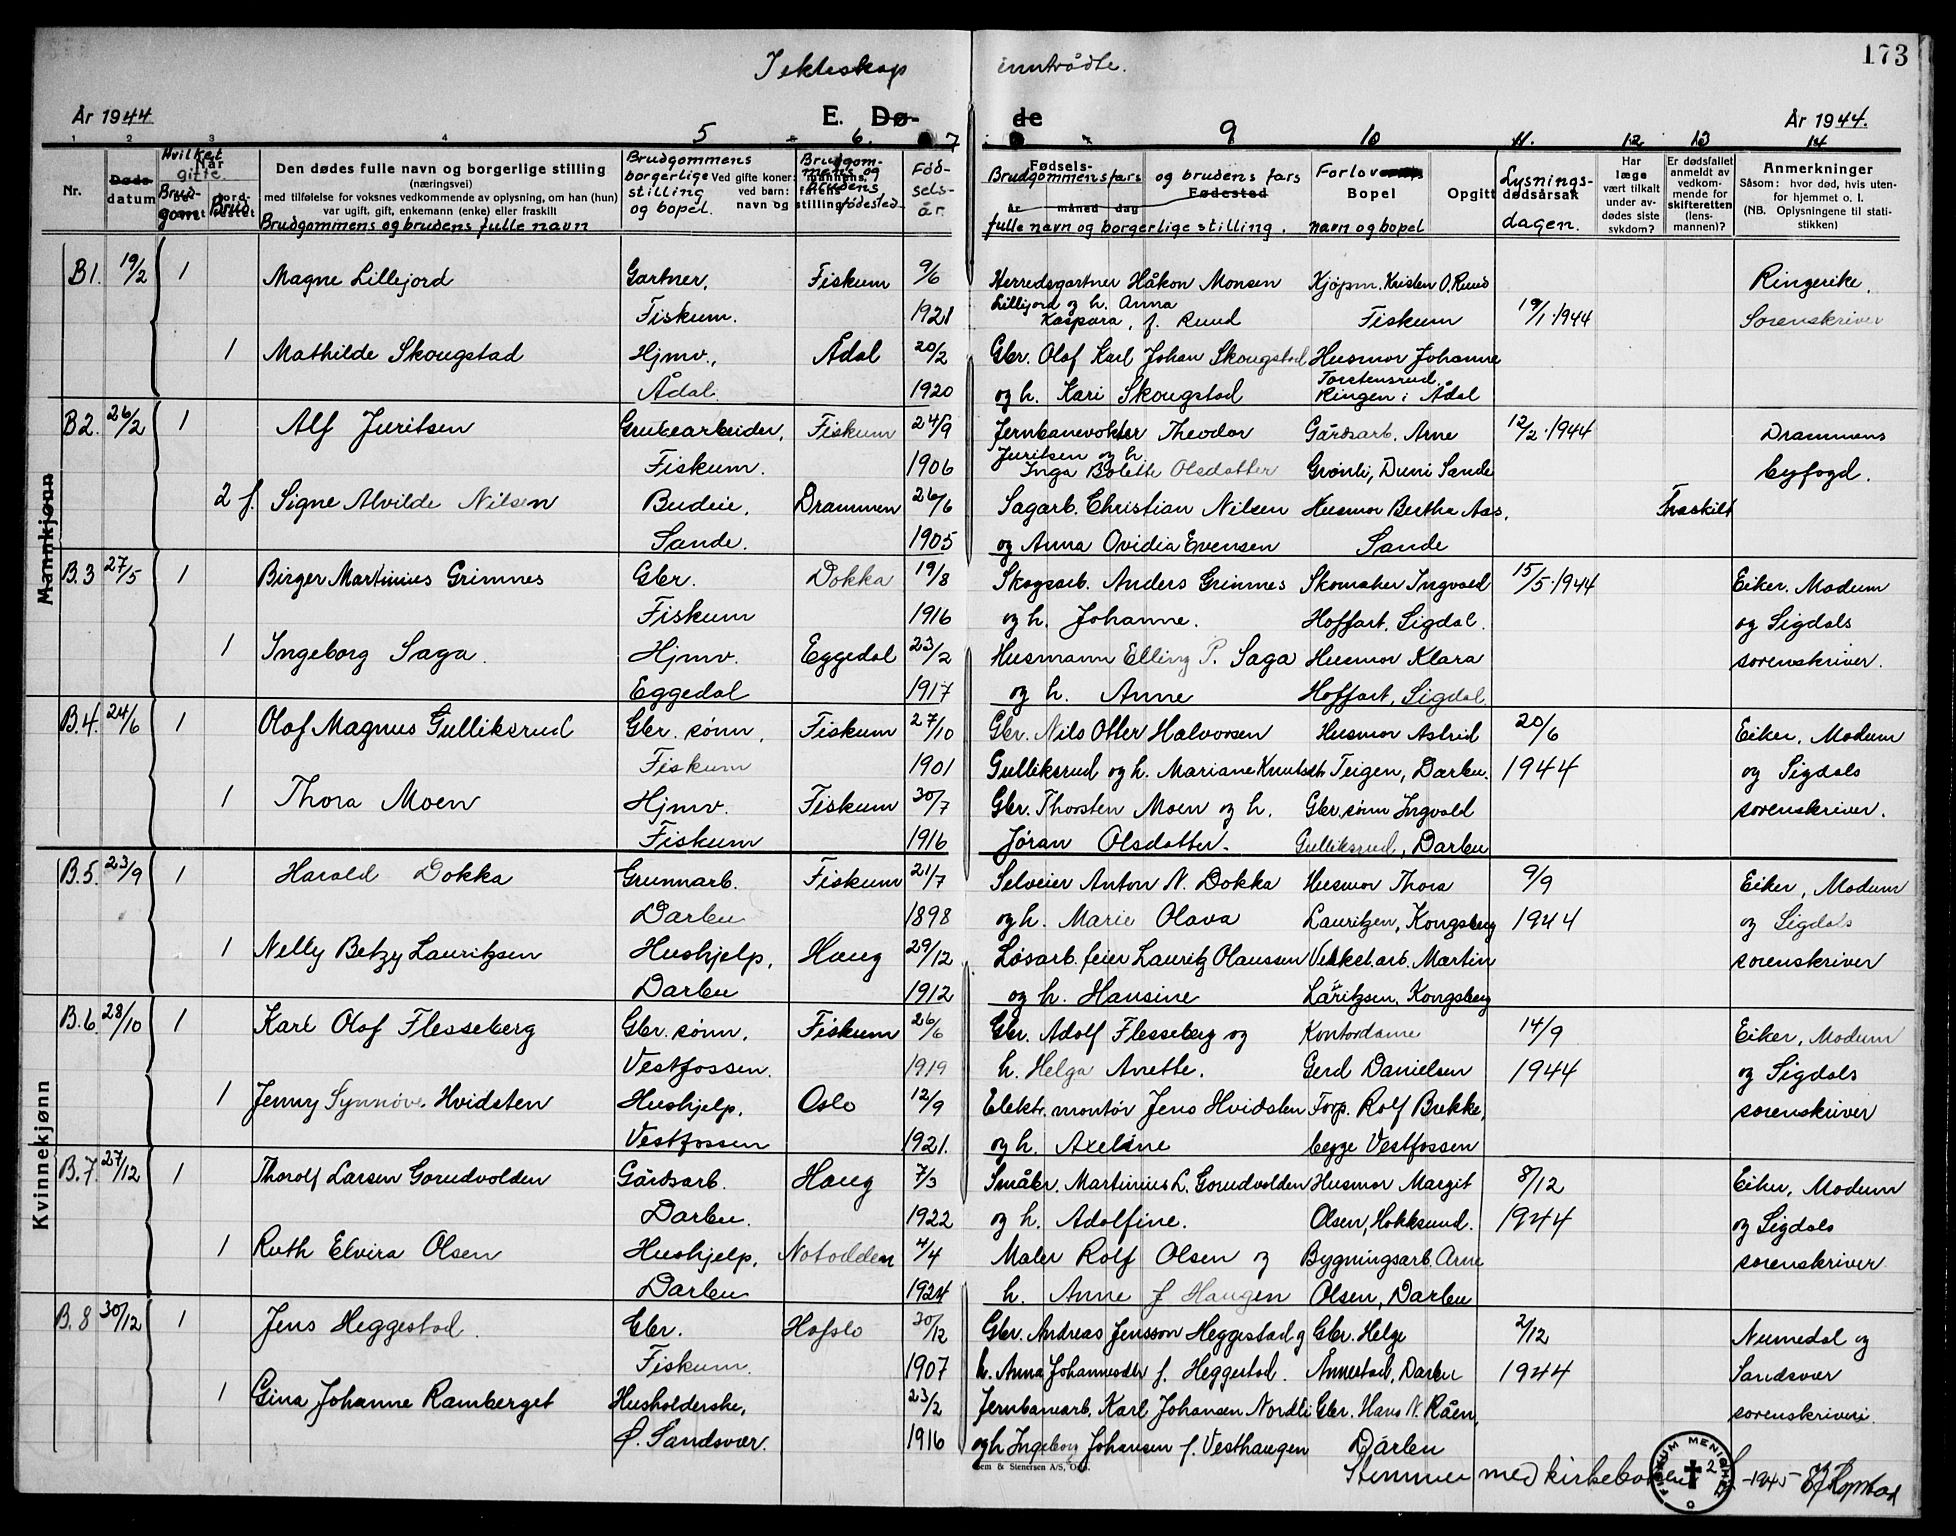 173
I ekteskap inntrådte.
År 1944 E. Dø- de År 1944.
1 2 3 4 5 6. 7 8 9 10 11. 12 13 14
Nr.
Døds datum
Hvilket gifte. Brudgom Brud
Den dødes fulle navn og borgerlige stilling
(næringsvei)
med tilføielse for voksnes vedkommende av oplysning, om han (hun)
var ugift, gift, enkemann (enke) eller fraskilt
Brudgommens og brudens fulle navn
Brudgommens borgerlige stilling og bopel.
Ved gifte koner: mannens,
ved barn: farens
navn og stilling
Brudgommens og brudens fødested
Fødselsår.
Fødsels-
Brudgommens fars og brudens fars
År måned dag Fødested
fulle navn og borgerlige stilling.
Forlovernes
Bopel
navn og bopel
Opgitt dødsårsak
Lysningsdagen.
Har læge vært tilkalt under avdødes siste sykdom?
Er dødsfallet anmeldt av vedkommende for skifteretten (lensmannen)?
Anmerkninger
Såsom: hvor død, hvis utenfor hjemmet o. l.
(NB. Oplysningene til statistikken)
Mannkjønn
Kvinnekjønn
B1. 19/2 1 Magne Lillejord Gartner, Fiskum 9/6 Herredsgartner Håkon Monsen Kjøpm. Kristen O. Ruud Ringerike
Fiskum. 1921 Lillejord og h. Anna Kaspara, f. Ruud Fiskum 19/1 1944 Sorenskriver
1 Mathilde Skougstad Hjmv., Ådal 20/2 Gbr. Olaf Karl Johan Skougstad Husmor Johanne
Ådal. 1920 og h. Kari Skougstad Torstensrud, Ringen i Ådal
B2. 26/2 1 Alf Juritsen Grubearbeider, Fiskum 24/9 Jernbanevokter Theodor Gårdsarb. Arne 12/2 1944 Drammens
Fiskum. 1906 Juritsen og h. Inga Bolette Olsdatter Grønli, Duni Sande byfogd.
2 f. Signe Alvilde Nilsen Budeie, Drammen 26/6 Sagarb. Christian Nilsen Husmor Berthe Aas, Fraskilt
Sande. 1905 og Anna Ovidia Evensen Sande
B.3 27/5 1 Birger Martinius Grimnes Gbr. Dokka 19/8 Skogsarb. Anders Grimnes Skomaker Ingvald 15/5 1944 Eiker, Modum
Fiskum 1916 og h. Johanne. Hoffart, Sigdal. og Sigdals
1 Ingeborg Saga Hjmv. Eggedal 23/2 Husmann Elling P. Saga Husmor Klara sorenskriver.
Eggedal 1917 og h. Anne Hoffart, Sigdal
B.4. 24/6 1 Olaf Magnus Gulliksrud Gbr. sønn, Fiskum 27/10 Gbr. Nils Otter Halvorsen Husmor Astrid 20/6 Eiker, Modum
Fiskum 1901 Gulliksrud og h. Mariane Knutsdt. Teigen, Darbu. 1944 og Sigdals
1 Thora Moen Hjmv. Fiskum 30/7 Gbr. Thorsten Moen og h. Gbr. sønn Ingvald sorenskriver.
Fiskum 1916 Jøran Olsdatter. Gulliksrud, Darbu
B.5. 23/9 1 Harald Dokka Grunnarb. Fiskum 21/7 Selveier Anton N. Dokka Husmor Thora 9/9 Eiker, Modum
Darbu 1898 og h. Marie Olava Lauritzen, Kongsberg 1944 og Sigdals
1 Nelly Betzy Lauritzsen Hushjelp, Haug 29/12 Løsarb. feier Lauritz Olaussen Verkst.arb. Martin sorenskriver
Darbu 1912 og h. Hansine Lauritzsen, Kongsberg
B.6. 28/10 1 Karl Olaf Flesseberg Gbr. sønn, Fiskum 26/6 Gbr. Adolf Flesseberg og Kontordame 14/9 Eiker, Modum
Vestfossen. 1919 h. Helga Anette. Gerd Danielsen 1944 og Sigdals
1 Jenny Synnøve Hvidsten Hushjelp, Oslo 12/9 Elektr. montør Jens Hvidsten Forp. Rolf Brekke, sorenskriver
Vestfossen 1921. og h. Axeline begge Vestfossen
B.7. 27/12 1 Thorolf Larsen Gorudvolden Gårdsarb. Haug 7/3 Småbr. Martinius L. Gorudvolden Husmor Margit 8/12 Eiker, Modum
Darbu. 1922 og h. Adolfine. Olsen, Hokksund. 1944 og Sigdals
1 Ruth Elvira Olsen Hushjelp, Notodden 4/4 Maler Rolf Olsen og Bygningsarb. Arne sorenskriver
Darbu 1924 h. Anne f Haugen Olsen, Darbu
B.8 30/12 1 Jens Heggestad. Gbr. Hofslo 30/12 Gbr. Andreas Jensson Heggestad og Gbr. Helge 2/12 Numedal og
Fiskum. 1907 h. Anna Johannesdtr f. Heggestad. Ånnestad, Darbu 1944 Sandsvær
1 Gina Johanne Ramberget Husholderske, 23/2 Jernbanearb. Karl Johansen Nordli Gbr. Hans N. Råen, sorenskriveri
Ø. Sandsvær. 1916 og h Ingeborg Johansen f. Vesthaugen Darbu
Sem & Stenersen A/S, Oslo.
Stemmer med kirkeboken 2 -1945-
FISKUM MENIGHET